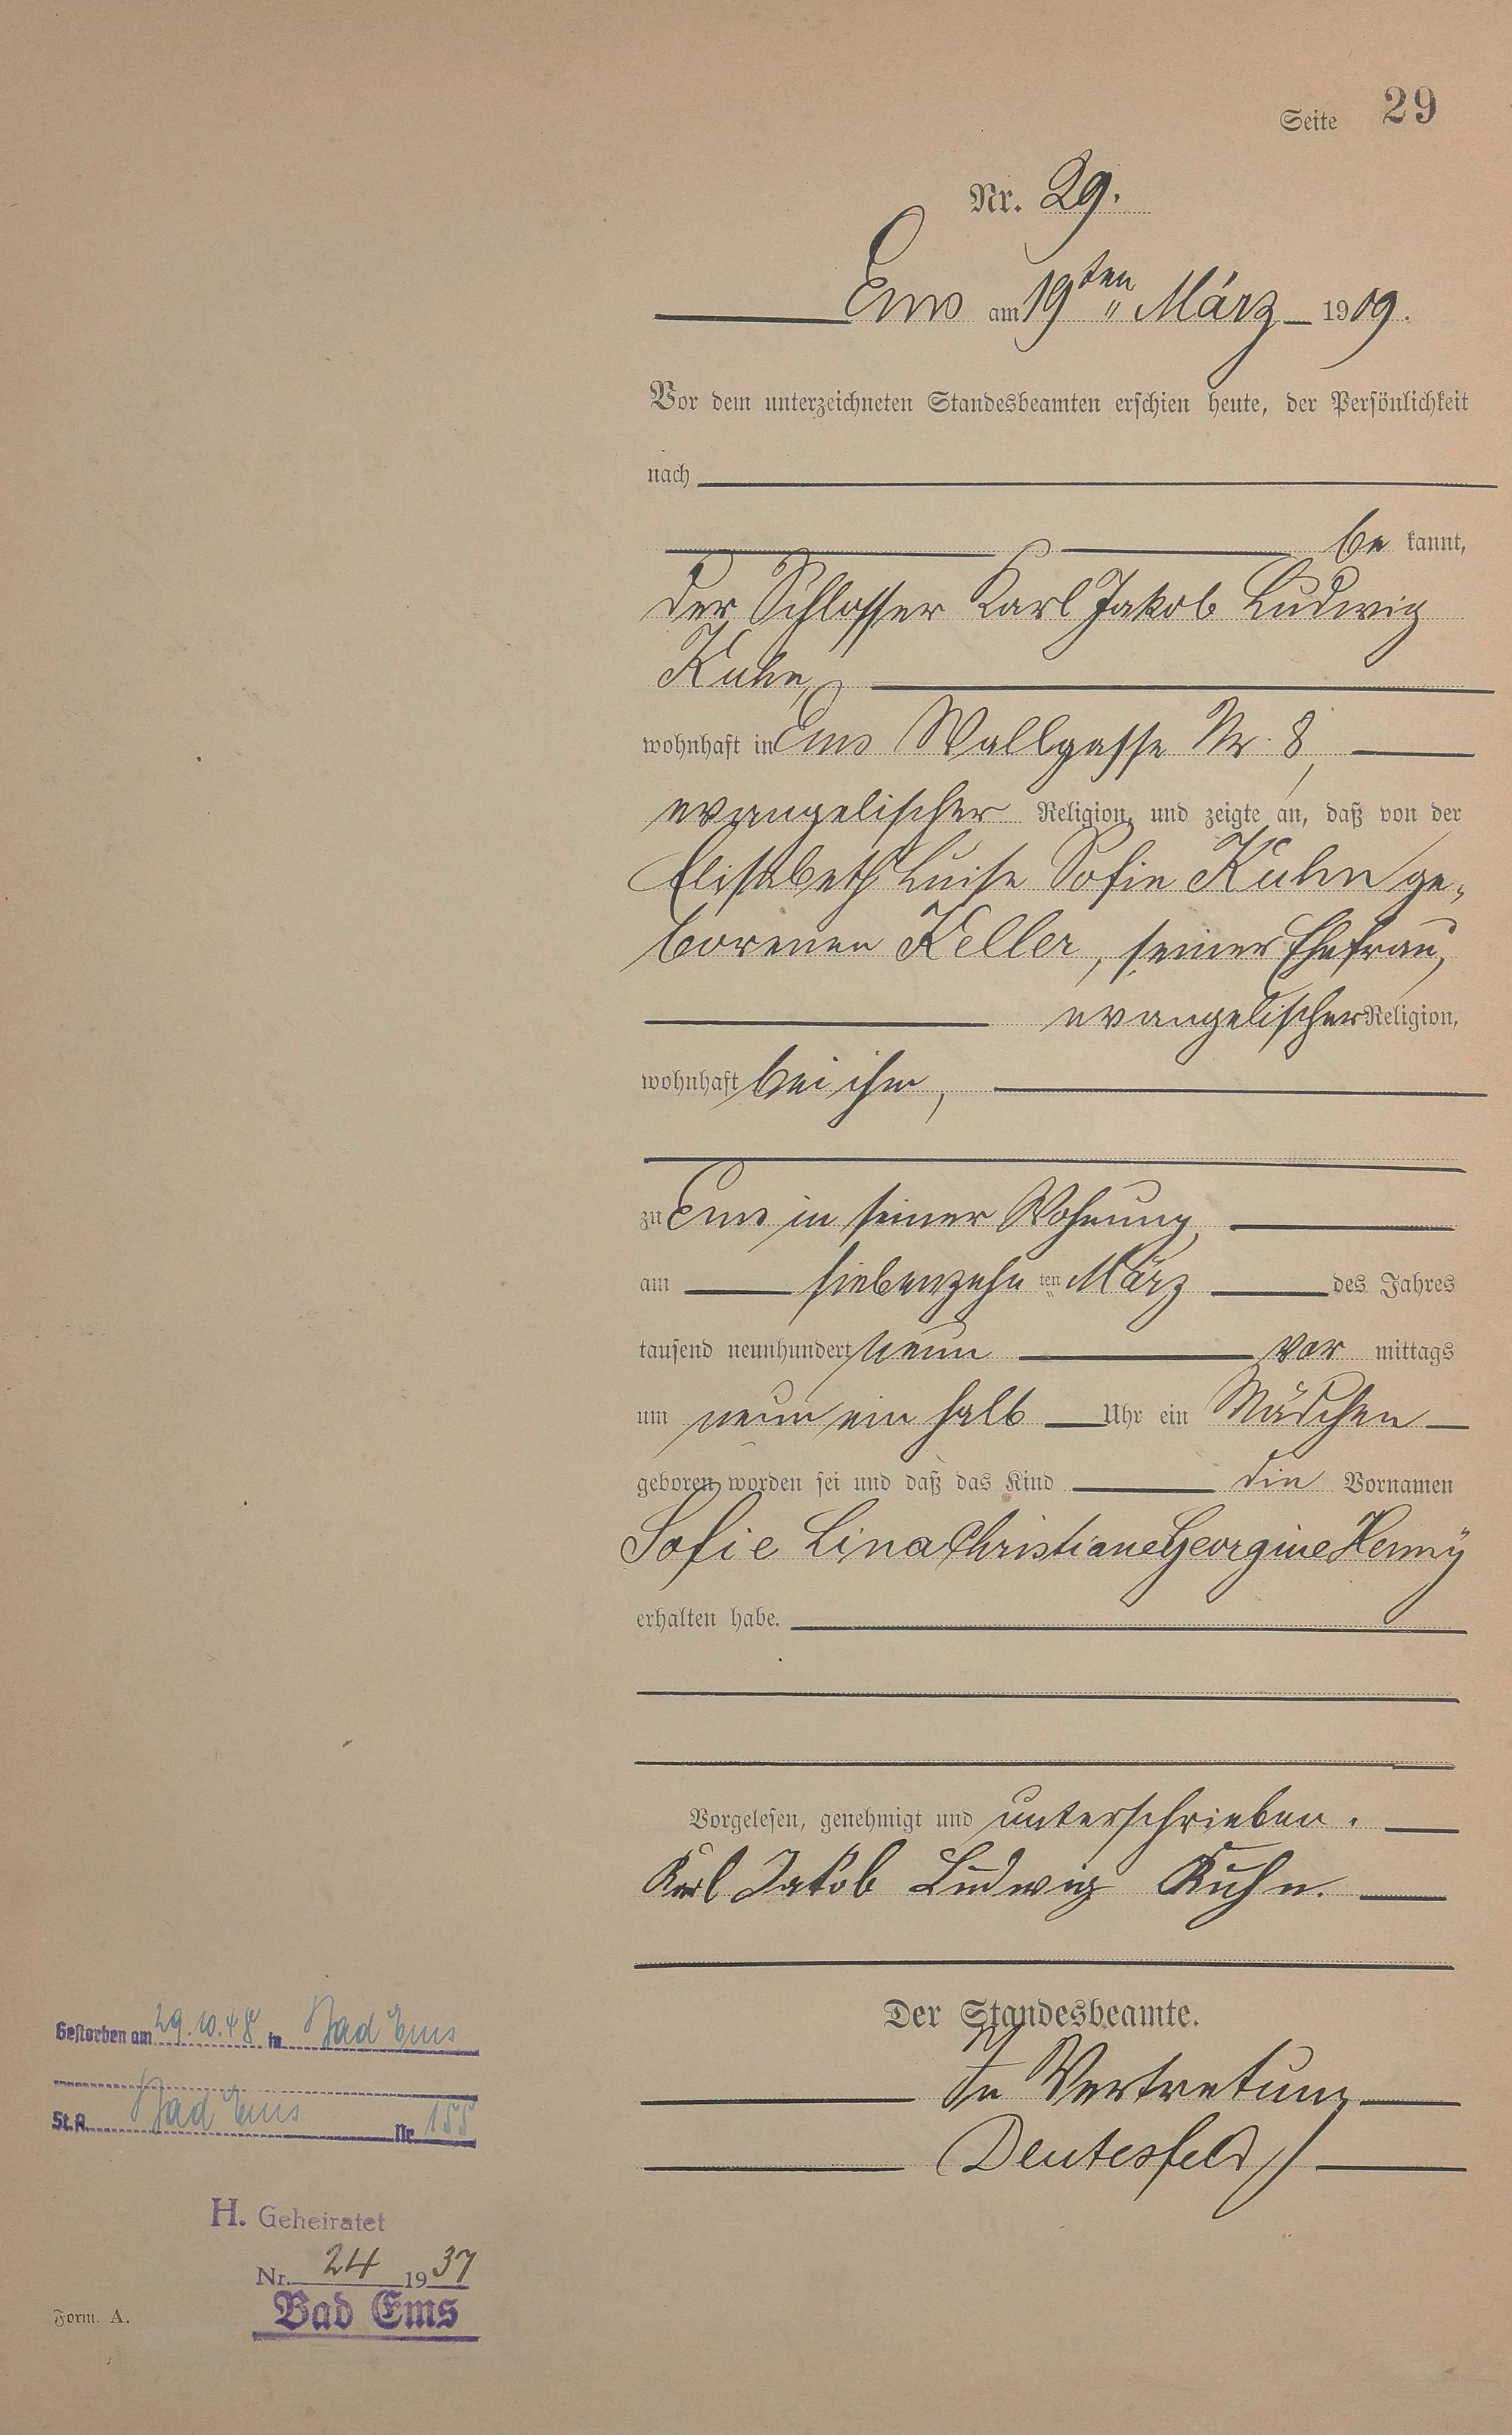 Seite 29
Nr. 29.
Ems am 19ten März 1909.
Vor dem unterzeichneten Standesbeamten erschien heute, der Persönlichkeit
nach
be kannt,
der Schlosser Karl Jakob Ludwig
Kuhn,
wohnhaft in Ems Wallgasse Nr. 8,
evangelischer Religion, und zeigte an, daß von der
Elisabeth Luise Sofie Kuhn ge-
borenen Keller, seiner Ehefrau,
evangelischer Religion,
wohnhaft bei ihm,
zu Ems in seiner Wohnung,
am siebenzehn ten März des Jahres
tausend neunhundert neun vor mittags
um neun ein halb Uhr ein Mädchen
geboren worden sei und daß das Kind die Vornamen
Sofie Lina Christiane Georgine Henny
erhalten habe.
Vorgelesen, genehmigt und unterschrieben.
Karl Jakob Ludwig Kuhn.
Der Standesbeamte.
In Vertretung
Deutesfeld
Gestorben am 29.10.48 in Bad Ems
St.A. Bad Ems Nr. 155
H. Geheiratet
Nr. 24 1937
Bad Ems
Form. A.